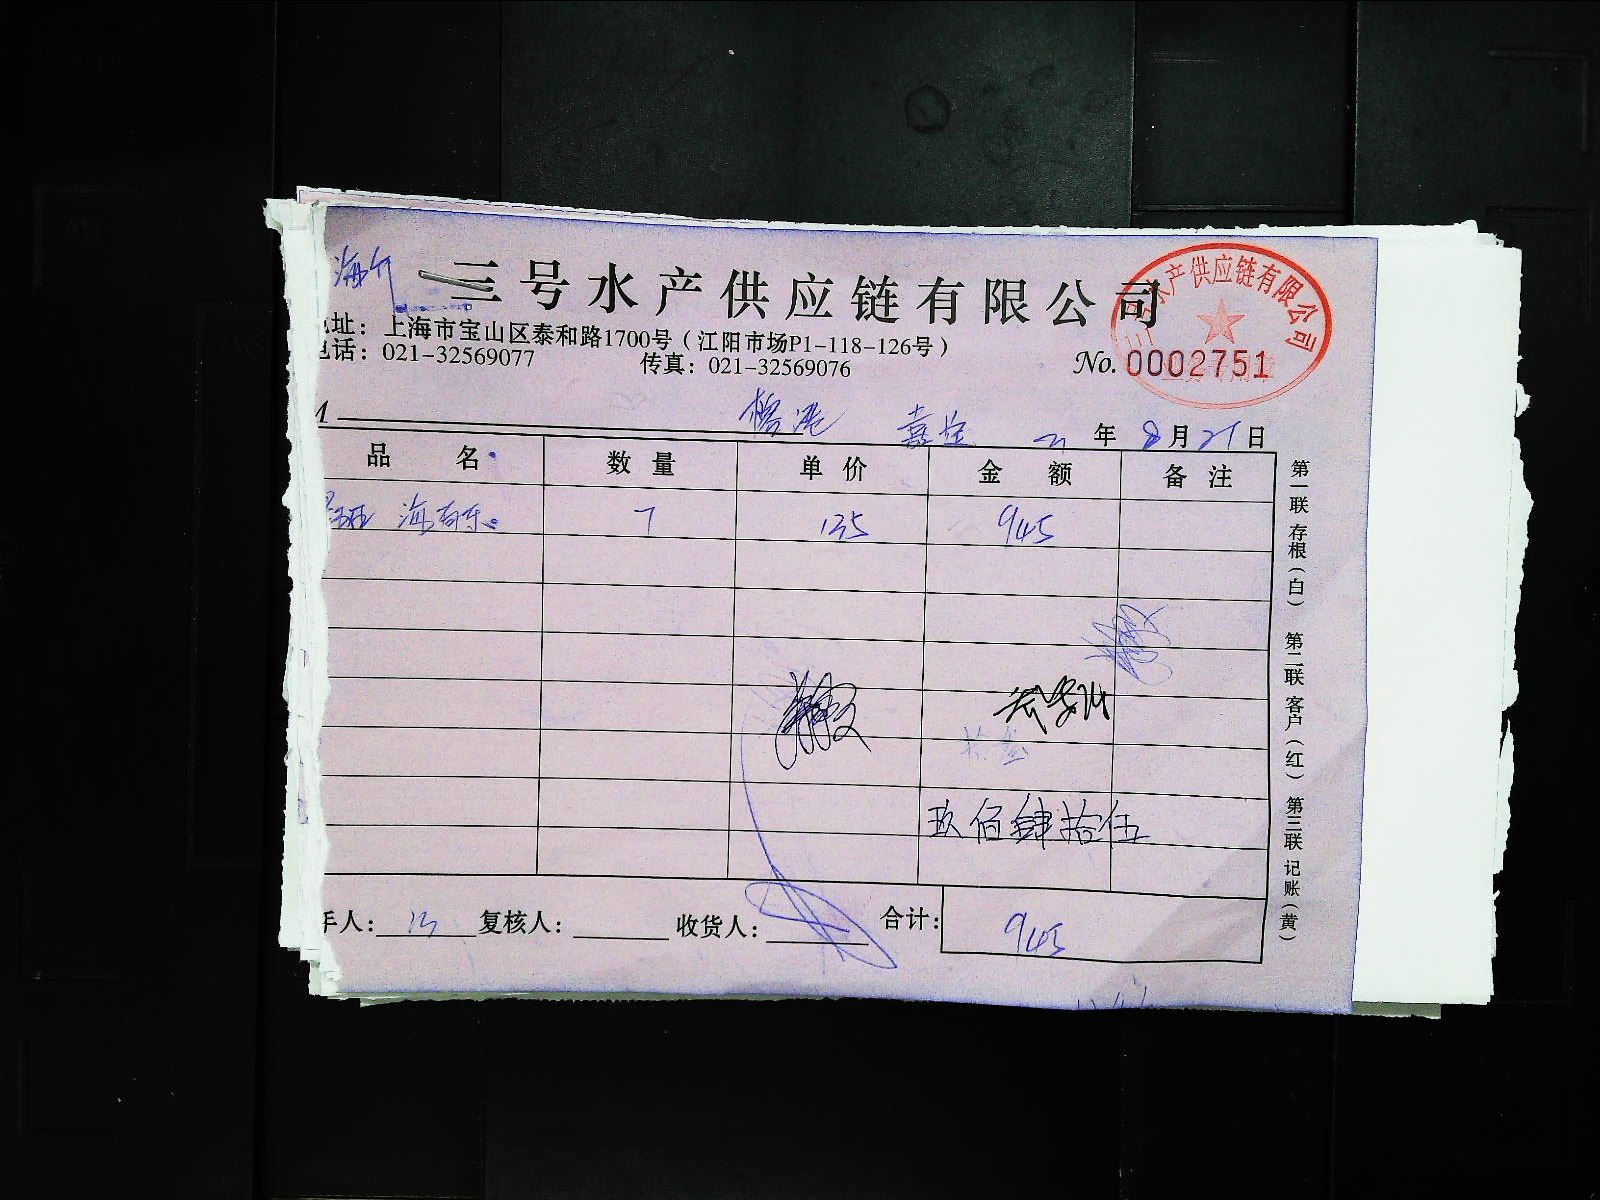 三号水产供应链有限公司
址：上海市宝山区泰和路1700号（江阳市场P1-118-126号）
电话：021-32569077 传真：021-32569076
No. 0002751
水产供应链有限公司
嘉定 21 年 8 月 21 日
品名 数量 单价 金额 备注
7 135 945
玖佰肆拾伍
手人： 复核人： 收货人： 合计： 945
第一联 存根（白） 第二联 客户（红） 第三联 记账（黄）